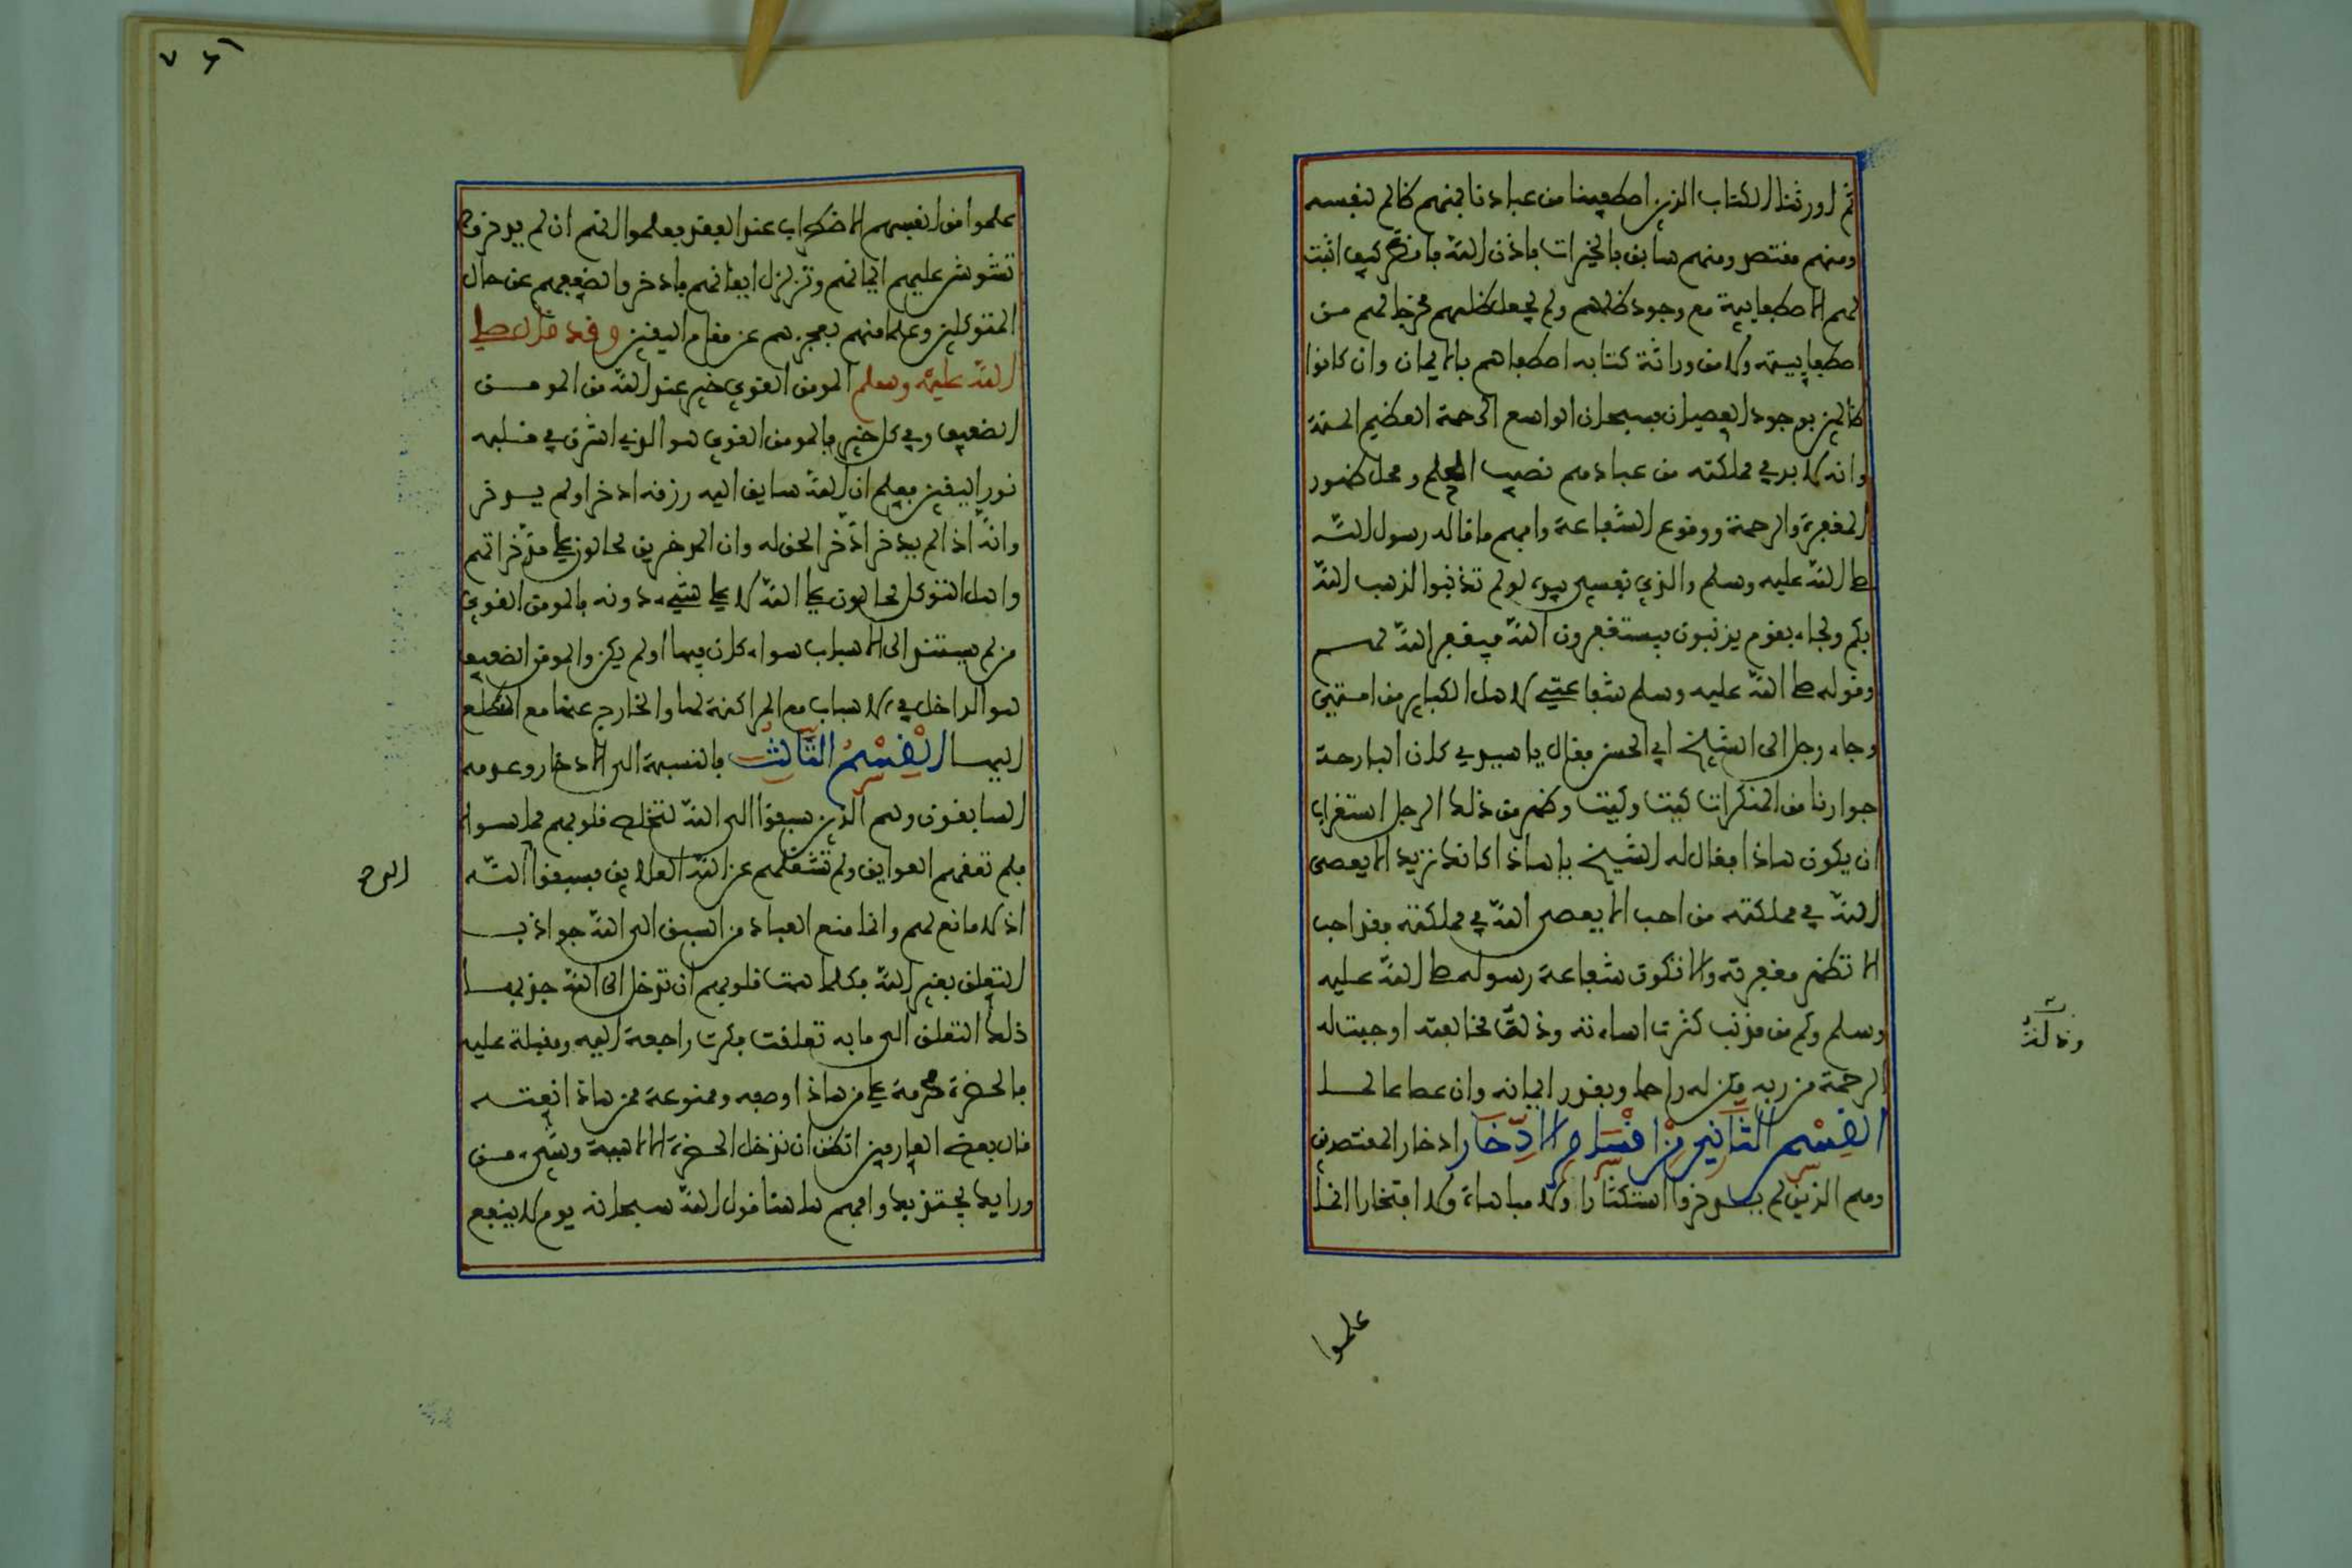 ثم اورثنا الكتاب الذين اصطفينا من عبادنا فمنهم ظالم لنفسه
ومنهم مقتصد ومنهم سابق بالخيرات باذن الله فانظر كيف اثبت
لهم الاصطفايية مع وجود ظلمهم ولم يجعل ظلمهم مخرجا لهم من
اصطفاييته ولا من وراثة كتابه اصطفاهم بالايمان وان كانوا
ظالمين بوجود العصيان فسبحان الواسع الرحمة العظيم المنة
وانه لا بد في مملكته من عباد هم نصيب الحلم ومحل ظهور
المغفرة والرحمة ووقوع الشفاعة وافهم ما قاله رسول الله
صلى الله عليه وسلم والذي نفسي بيده لو لم تذنبوا لذهب الله
بكم ولجاء بقوم يذنبون فيستغفرون الله فيغفر الله لهم
وقوله صلى الله عليه وسلم شفاعتي لاهل الكباير من امتي
وجاء رجل الى الشيخ ابي الحسن فقال يا سيدي كان البارحة
جوارنا من المنكرات كيت وكيت وظهر من ذلك الرجل استغراب
ان يكون هاذا فقال له الشيخ يا هاذا كانك تريد الا يعصى
الله في مملكته من احب الا يعصى الله في مملكته فقد احب
الا تظهر مغفرته والا تكون شفاعة رسوله صلى الله عليه
وسلم وكم من مذنب كثرت اساءته وذلته مخالفته اوجبت له
الرحمة من ربه فكن له راحما وبقدر ايمانه وان عصا عالما
القسم الثاني من اقسام الادخار ادخار المقتصدين
وهم الذين لم يدخروا استكثارا ولا مباهاة ولا افتخارا انما
علموا
وذلته
٧٦
علموا من انفسهم الاضطراب عند الفقد فعلموا انهم ان لم يدخروا
تشوش عليهم ايمانهم وتزلزل ايقانهم فادخروا لضعفهم عن حال
المتوكلين وعلما منهم بعجزهم عن مقام اليقين وقد قال صلى
الله عليه وسلم المومن القوي خير عند الله من المومن
الضعيف وفي كل خير فالمومن القوي هو الذي اشرق في قلبه
نور اليقين فعلم ان الله سايق اليه رزقه ادخر او لم يدخر
وانه اذا لم يدخر ادخر الحق له وان المدخرين محالون على مدخراتهم
واهل التوكل محالون على الله لا على شيء دونه فالمومن القوي
من لم يستند الى الاسباب سواء كان فيها او لم يكن والمومن الضعيف
هو الداخل في الاسباب مع المراكنة لها والخارج عنها مع التطلع
اليها القسم الثالث بالنسبة الى الادخار وعدمه
السابقون وهم الذين سبقوا الى الله لتخلص قلوبهم مما سواه
فلم تعقهم العوايق ولم تشغلهم عن الله العلايق فسبقوا الى الله
اذ لا مانع لهم وانما منع العباد من السبق الى الله جواذب
التعلق بغير الله فكلما همت قلوبهم ان ترحل الى الله جذبها
ذلك التعلق الى ما به تعلقت فكرت راجعة اليه ومقبلة عليه
فالحضرة محرمة على من هاذا وصفه وممنوعة ممن هاذا نعته
قال بعض العارفين اتظن ان تدخل الحضرة الالاهية وشيء من
ورايك يجتذبك وافهم هاهنا قول الله سبحانه يوم لا ينفع